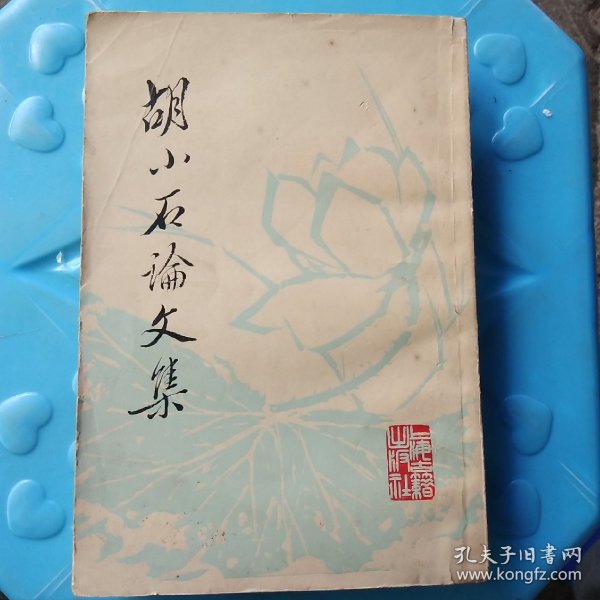 胡小石論文集
古籍
出版社
孔夫子旧書网
www.kongfz.com